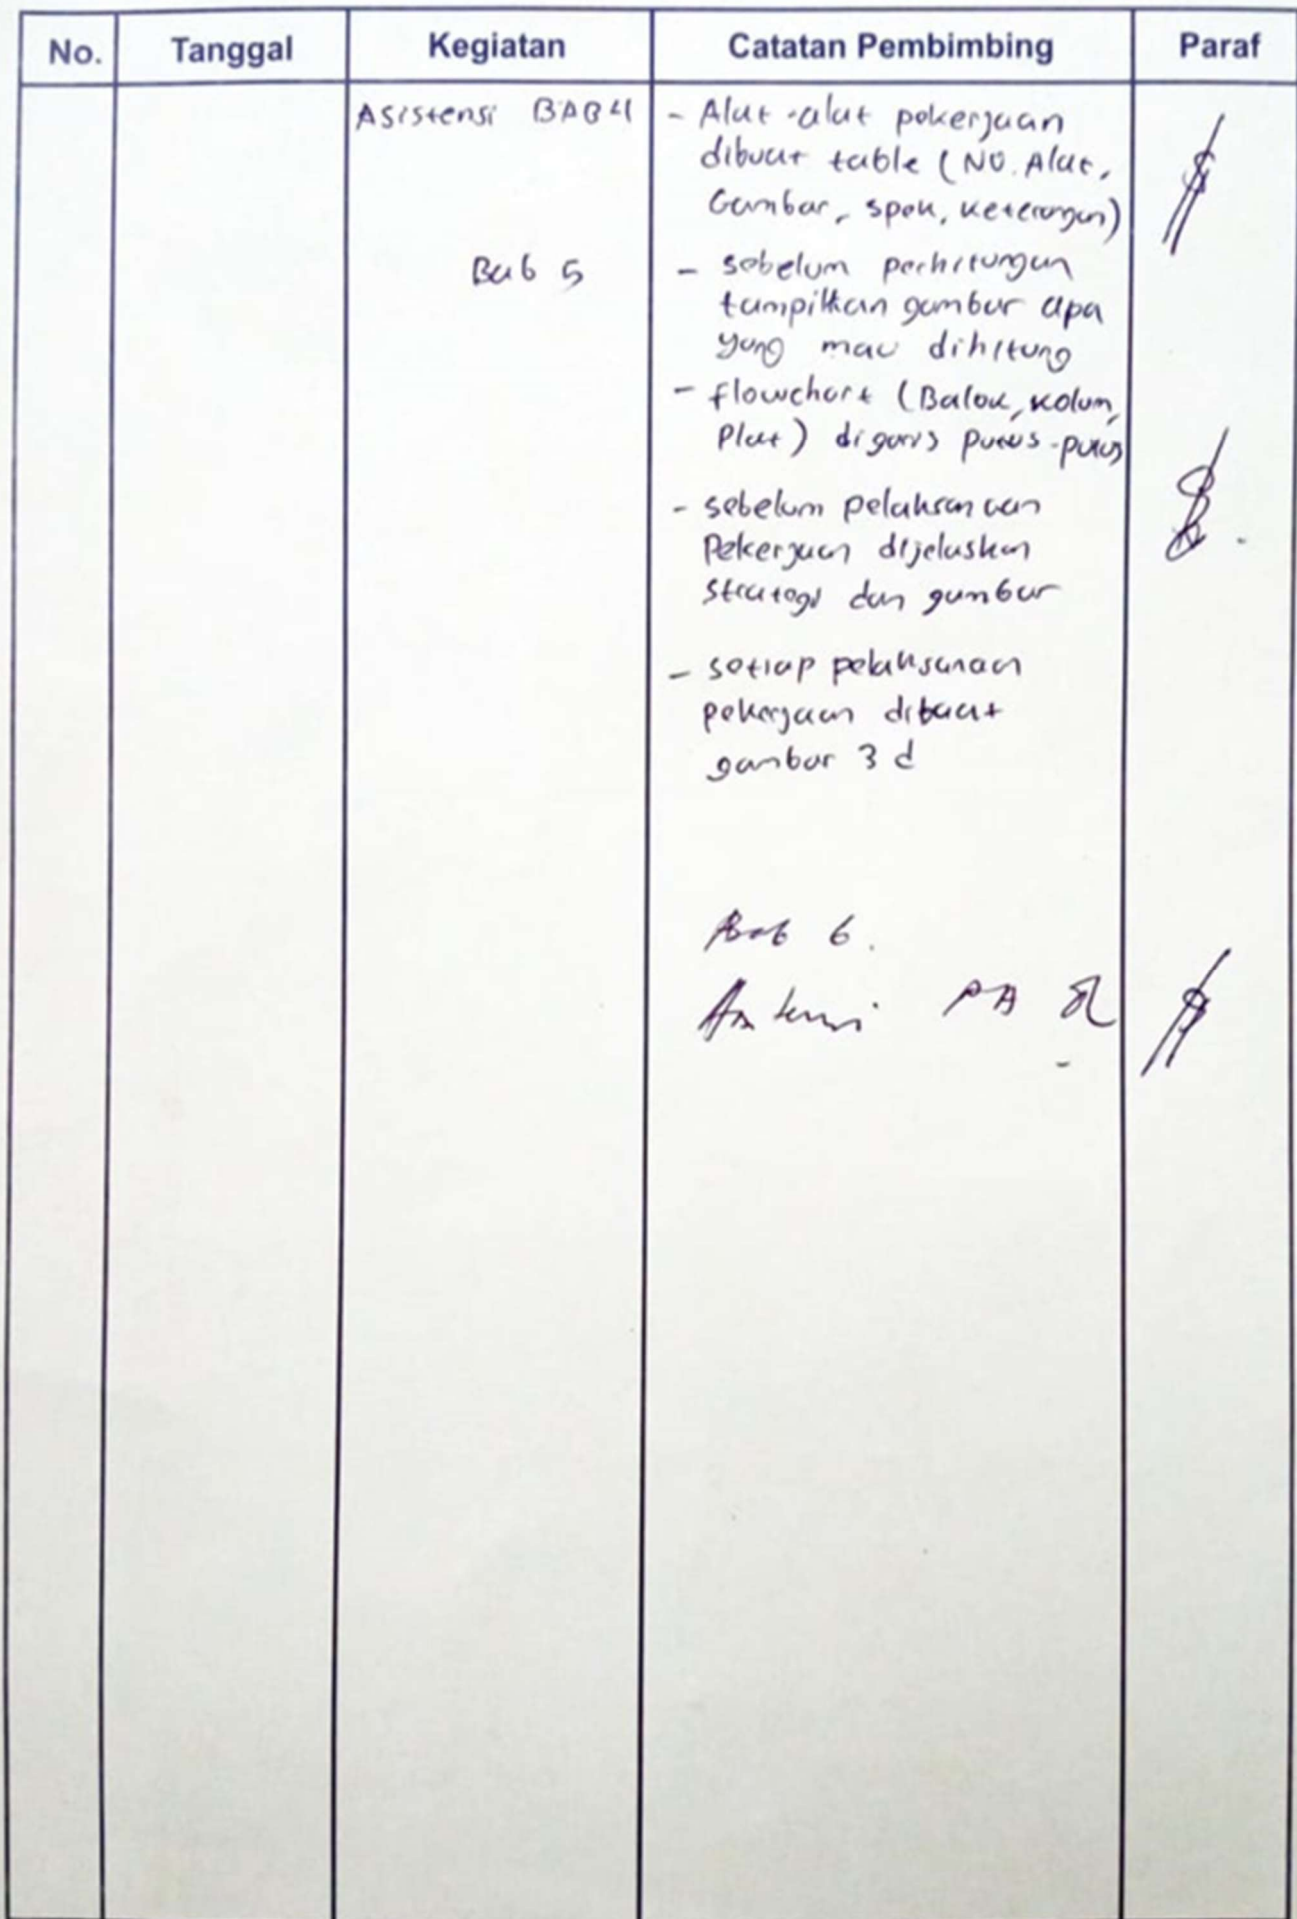 No. Tanggal Kegiatan Catatan Pembimbing Paraf
Asistensi BAB 4
- Alat-alat pekerjaan
dibuat table (NO. Alat,
Gambar, spek, keterangan)
Bab 5
- sebelum perhitungan
tampilkan gambar apa
yang mau dihitung
- flowchart (Balok, kolom,
Plat) digaris putus-putus
- sebelum pelaksanaan
Pekerjaan dijelaskan
strategi dan gambar
- setiap pelaksanaan
pekerjaan dibuat
gambar 3 d
Bab 6.
PA